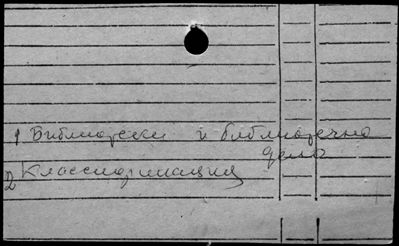 1 Библиотеки и библиотечно
дело
2 Класификация